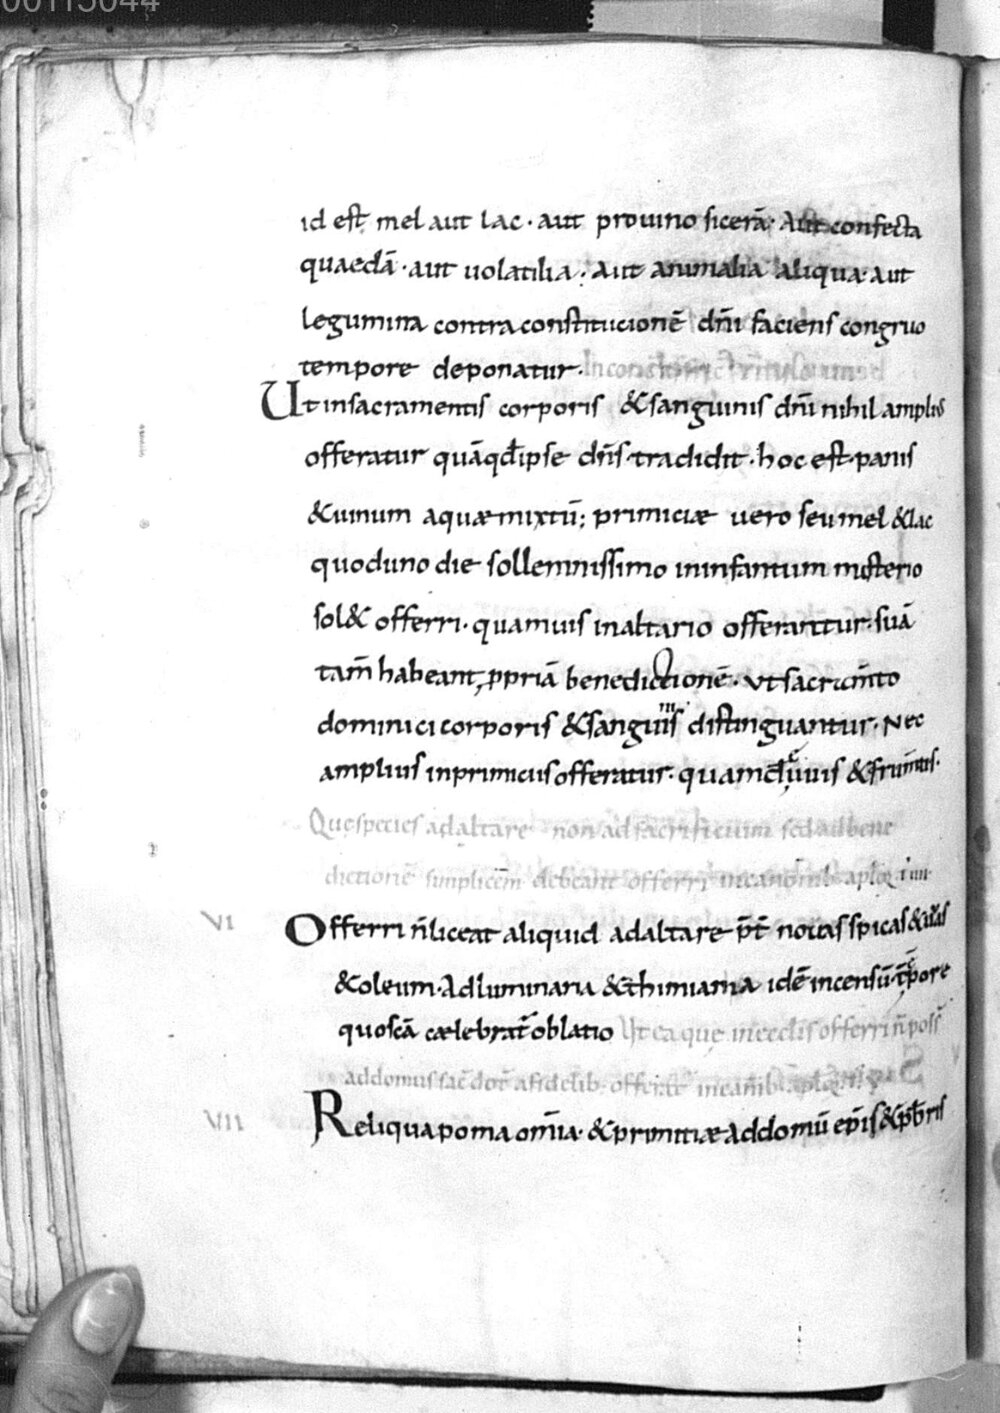 00115044
id est mel aut lac · aut prouino sicerā · Aut confecta
quaedā · aut uolatilia · Aut animalia aliqua · aut
legumina contra constitucionē dn̄i faciens congruo
tempore deponatur ·
Ut in sacramentis corporis & sanguinis dn̄i nihil amplius
offeratur quā qđ ipse dn̄s · tradidit · hoc est · panis
& uinum aquæ mixtū; primiciæ uero seu mel & lac
quod uno die sollemnissimo in infantum misterio
sol& offerri · quamuis in altario offerantur · suā
tam̄ habeant ꝓpriā benedictionē · ut sacram̄to
dominici corporis & sanguinis distinguantur · Nec
amplius in primiciis offeratur · quam đ uuis & frum̄tis ·
Que species ad altare non ad sacrificium sed ad bene
dictionē simplicem debeant offerri in canonib aplor̄ t iiii
VI Offerri n̄ liceat aliquid ad altare p̄t nouas spicas & uuas
& oleum · Ad luminaria & thimiama idē incensū · tēpore
quo scā cælebrat̄ oblatio Ut ea que in ecclis offerri n̄ poss̄
ad domus sacerdot̄ a fidelib · offerant̄
VII Reliqua poma om̄ia · & primitiæ ad domū ep̄is & p̄bris